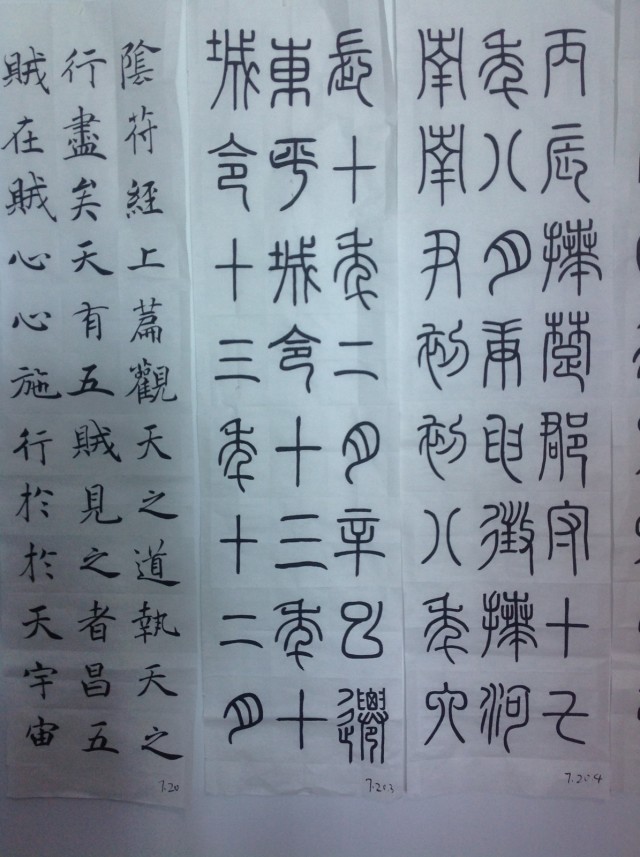 丙辰拜楚郡守十七
年八月庚申徵拜河
南南尹初初八年六
7.20.4
長十年二月辛巳遷
東平城令十三年十
城令十三年十二月
7.20.3
陰符經上篇觀天之道執天之
行盡矣天有五賊見之者昌五
賊在賊心心施行於於天宇宙
7.20